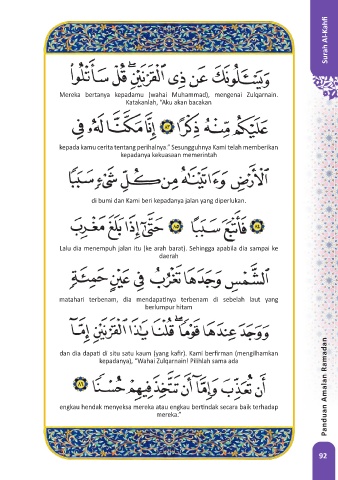 Surah Al-Kahfi
وَيَسْـَٔلُونَكَ عَن ذِى ٱلْقَرْنَيْنِ ۖ قُلْ سَأَتْلُوا۟
Mereka bertanya kepadamu (wahai Muhammad), mengenai Zulqarnain.
Katakanlah, "Aku akan bacakan
عَلَيْكُم مِّنْهُ ذِكْرًا ٨٣ إِنَّا مَكَّنَّا لَهُۥ فِى
kepada kamu cerita tentang perihalnya." Sesungguhnya Kami telah memberikan
kepadanya kekuasaan memerintah
ٱلْأَرْضِ وَءَاتَيْنَـٰهُ مِن كُلِّ شَىْءٍ سَبَبًا
di bumi dan Kami beri kepadanya jalan yang diperlukan.
٨٤ فَأَتْبَعَ سَبَبًا ٨٥ حَتَّىٰٓ إِذَا بَلَغَ مَغْرِبَ
Lalu dia menempuh jalan itu (ke arah barat). Sehingga apabila dia sampai ke
daerah
ٱلشَّمْسِ وَجَدَهَا تَغْرُبُ فِى عَيْنٍ حَمِئَةٍ
matahari terbenam, dia mendapatinya terbenam di sebelah laut yang
berlumpur hitam
وَوَجَدَ عِندَهَا قَوْمًا ۗ قُلْنَا يَـٰذَا ٱلْقَرْنَيْنِ إِمَّآ
dan dia dapati di situ satu kaum (yang kafir). Kami berfirman (mengilhamkan
kepadanya), "Wahai Zulqarnain! Pilihlah sama ada
أَن تُعَذِّبَ وَإِمَّآ أَن تَتَّخِذَ فِيهِمْ حُسْنًا ٨٦
engkau hendak menyeksa mereka atau engkau bertindak secara baik terhadap
mereka."
Panduan Amalan Ramadan
92